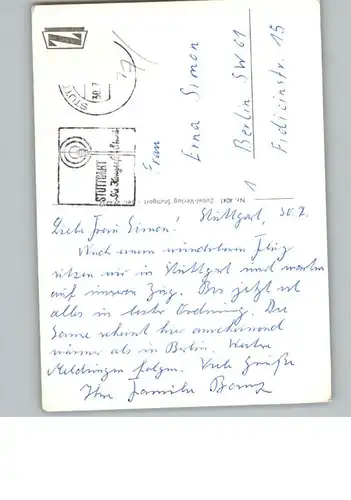 Stuttgart, 30.7.
Liebe Frau Simon!
Nach einem wunderbaren Flug
sitzen wir in Stuttgart und warten
auf unseren Zug. Bis jetzt ist
alles in bester Ordnung. Die
Sonne scheint hier anscheinend
wärmer als in Berlin. Weitere
Meldungen folgen. Viele Grüße
Ihre Familie
Frau
Erna Simon
1 Berlin SW 61
Fidicinstr. 15
STUTT
30.7
STUTTGART
Nr. 4041 Zobel-Verlag Stuttgart